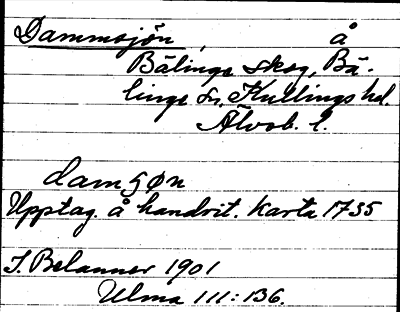 Dammsjön, å
Bälinge skog, Bä-
linge sn, Kullings hd.
Älvsb. l.
damʃøn
Upptag. å handrit. Karta 1735
J. Belanner 1901
Ulma 111:136.